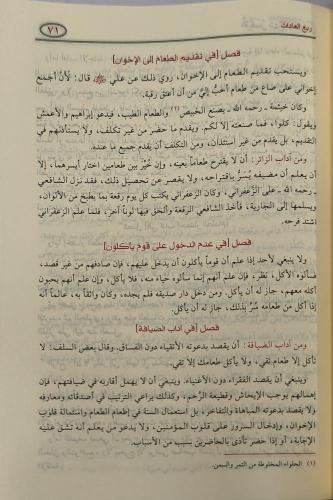 ربع العادات
٧١
فصل [في تقديم الطعام إلى الإخوان]
ويستحب تقديم الطعام إلى الإخوان، روي ذلك عن علي رضي الله عنه قال: لأنْ أجمع
إخواني على صاع من طعام أحبُّ إليَّ من أن أعتق رقبة.
وكان خيثمة ـ رحمه الله ـ يصنع الخبيص(١) والطعام الطيب، فيدعو إبراهيم والأعمش
ويقول: كلوا، فما صنعته إلا لكم. ويقدم ما حضر من غير تكلف، ولا يستأذنهم في
التقديم، بل يقدم من غير استئذان، ومن التكلف أن يقدم جميع ما عنده.
ومن آداب الزائر: أن لا يقترح طعاماً بعينه، وإن خُيِّر بين طعامين اختار أيسرهما، إلا
أن يعلم أن مضيفه يُسرُّ باقتراحه، ولا يقصر عن تحصيل ذلك، فقد نزل الشافعي
ـ رحمه الله ـ على الزعفراني، وكان الزعفراني يكتب كل يوم رقعة بما يطبخ من الألوان،
ويسلمها إلى الجارية، فأخذ الشافعي الرقعة وألحق فيها لوناً آخر، فلما علم الزعفراني
اشتد فرحه.
فصل [في عدم الدخول على قوم يأكلون]
ولا ينبغي لأحد إذا علم أن قوماً يأكلون أن يدخل عليهم، فإن صادفهم من غير قصد،
فسألوه الأكل، نظر، فإن علم أنهم إنما سألوه حياء منه، فلا يأكل، وإن علم أنهم يحبون
أكله معهم، جاز له أن يأكل. ومن دخل دار صديقه فلم يجده، وكان واثقاً به، عالماً أنه
إذا أكل من طعامه سُرَّ بذلك، جاز له أن يأكل.
فصل [في آداب الضيافة]
ومن آداب الضيافة: أن يقصد بدعوته الأتقياء دون الفساق. وقال بعض السلف: لا
تأكل إلا طعام تقي، ولا يأكل طعامك إلا تقي.
وينبغي أن يقصد الفقراء دون الأغنياء. وينبغي أن لا يهمل أقاربه في ضيافتهم، فإن
إهمالهم يوجب الإيحاش وقطيعة الرَّحِم، وكذلك يراعي الترتيب في أصدقائه ومعارفه
ولا يقصد بدعوته المباهاة والتفاخر، بل استعمال السنة في إطعام الطعام واستمالة قلوب
الإخوان، وإدخال السرور على قلوب المؤمنين، ولا يدعو من يعلم أنه تشق عليه
الإجابة، أو إذا حضر تأذى بالحاضرين بسبب من الأسباب.
(١) الحلواء المخلوطة من التمر والسمن.